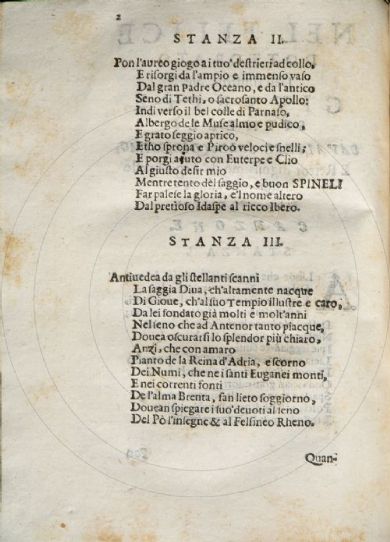 2
STANZA II.
Pon l'aureo giogo ai tuo' destrieri ad collo,
E risorgi da l'ampio e immenso vaso
Dal gran padre Oceano, e da l'antico
Seno di Tethi, o sacrosanto Apollo:
Indi verso il bel colle di Parnaso,
Albergo de le Muse almo e pudico,
E grato seggio aprico,
Etho sprona e Piroo veloci e snelli;
E porgi aiuto con Euterpe e Clio
Al giusto desir mio
Mentre tento del saggio, e buon SPINELI
Far palese la gloria, e'l nome altero
Dal pretioso Idaspe al ricco Ibero.
STANZA III.
Antiuedea da gli stellanti scanni
La saggia Diua, ch'altamente nacque
Di Gioue, ch'al suo Tempio illustre e caro,
Da lei fondato già molti e molt'anni
Nel seno che ad Antenor tanto piacque,
Douea oscurarsi lo splendor più chiaro,
Anzi, che con amaro
Pianto de la Reina d'Adria, e scorno
Dei Numi, che ne i santi Euganei monti,
E nei correnti fonti
De l'alma Brenta, fan lieto soggiorno,
Douean spiegare i suo' deuoti al seno
Del Pò l'insegne & al Felsineo Rheno.
Quan-